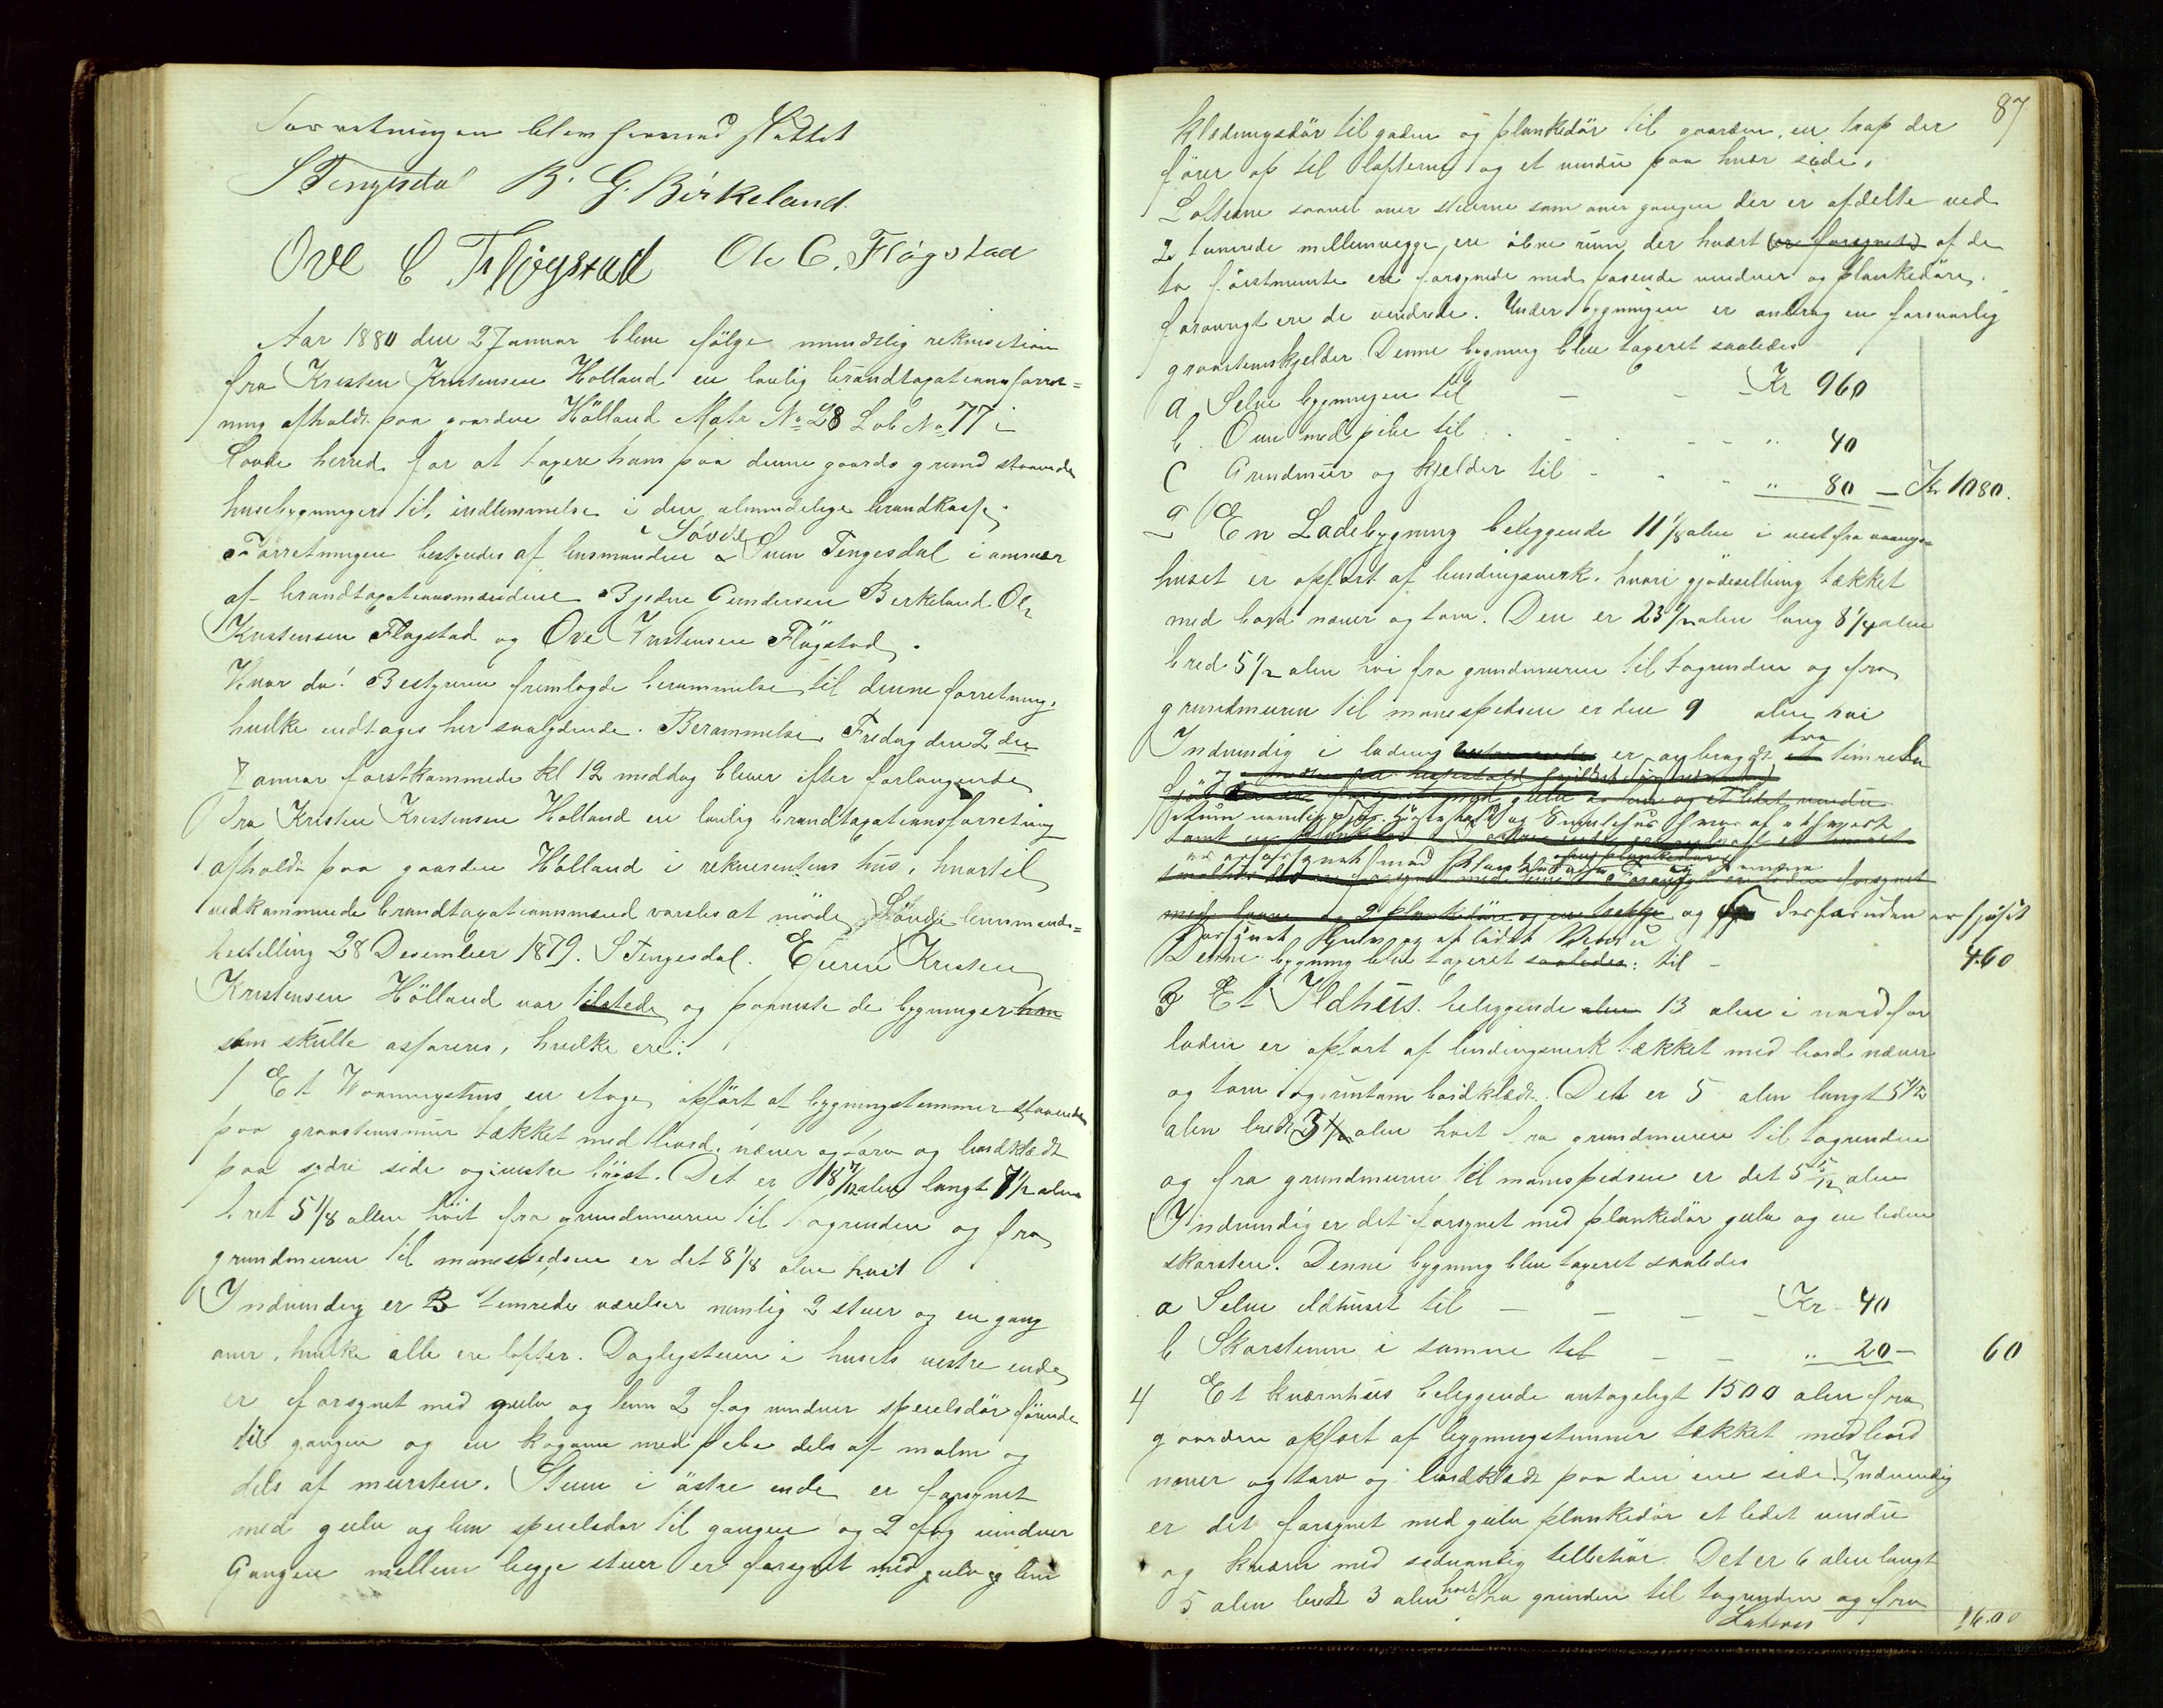 Forretningen blev hermed sluttet
S Tengesdal B. G. Birkeland
Ove C Fløgstad Ole C. Flögstad
Aar 1880 den 2 Januar blev følge mundtlig rekvisition
fra Kristen Kristensen Hølland en lovlig brandtaxationsforret-
ning afholdt paa gaarden Hölland Matr No 28 Lob No 77 i
Sovde herred for at taxere ham paa denne gaards grund staaende
husebygninger til indlemmelse i den almindelige brandkasse.
Forretningen bestyredes af lensmanden i Søvde Sven Tengesdal i overvær
af brandtaxationsmændene Bjedne Gundersen Birkeland Ole
Kristensen Flögstad og Ove Kristensen Flögstad.
Hvor da! Bestyreren fremlagde berammelse til denne forretning,
hvilke indtages her saalydende. Berammelse. Fredag den 2 den
Januar førstkommende kl 12 middag bliver efter forlangende
fra Kristen Kristensen Hølland en lovlig brandtaxationsforretning
afholdt paa gaarden Hølland i rekvirentens hus, hvortil
vedkommende brandtaxationsmænd varsles at møde. Søvde lensmands-
bestilling 28 Desember 1879. S Tengesdal. Eieren Kristen
Kristensen Hölland var tilstede og paaviste de bygninger han
som skulle asfureres, hvilke ere:
1 Et Vaaningshus en etage opført af bygningstømmer staaende
paa graastensmur tækket med bord, næver og torv og bordklædt
paa søndre side og i vestre bøyst. Det er 18 7/12 alen langt 7 1/2 alen
bret 5 1/8 allen höit fra grundmuren til tagrenden og fra
grundmuren til mønespedsen er det 8 1/8 alen høit
Indvendig er 3 tømrede værelser nemlig 2 stuer og en gang
over, hvilke alle ere lofter. Dagligstuen i husets vestre ende
er forsynet med gulv og lem 2 fag vinduer speielsdør førende
til gangen og en kogovn med pibe dels af malm og
dels af mursten. Stuen i østre ende er forsynet
med gulv og lem speielsdør til gangen og 2 fag vinduer
Gangen mellem begge stuer er forsynet med gulv og lem
87
klædningsdör til gaden og plankedör til gaarden, en trap der
förer op til lofterne og et vindu paa hver side.
Lofterne saavel over stuerne som over gangen der er afdelte ved
2 tømrede mellemvegge, ere åbne rum, der hvert (er forsynet) af de
to førstnævnte ere forsynede med pasende vinduer og plankedöre.
forøvrigt ere de uindrede. Under bygningen er anbrag en forsvarlig
graastenskjelder. Denne bygning blev taxeret saaledes
a Selve bygningen til Kr 960
b. Ovn med pibe til " 40
c Grundmur og kjelder til " 80 — Kr 1080.
2 En Ladebygning beliggende 11 1/8 alen i vest fra vaanings-
huset er opført af bindingsverk, hvori gjødselbing tækket
med bord næver og torv. Den er 23 1/2 alen lang 8 1/4 alen
bred 5 1/2 alen høi fra grundmuren til tagrenden og fra
grundmuren til mønespedsen er den 9 alen høi
Indvendig i ladens er anbragt et tre timrede
Rum nemlig Fjøs Hestestald og Smalehus hvor af ethvert
er forsynet med
med laave og 2 plankedöre og en trappe og desforuden er fjöset
forsynet Gulv og et lidet Vindu
Denne bygning blev taxeret saaledes: til — 460
3 Et Ildhus. beliggende alen 13 alen i nord for
laden er opfört af bindingsverk tækket med bord næver
og torv og runtom bordklædt. Det er 5 alen langt 5 1/12
alen bredt 3 1/2 alen höit fra grundmuren til tagrenden
og fra grundmuren til mønespedsen er det 5 5/12 alen
Indvendig er det forsynet med plankedör gulv og en liden
skorsten. Denne bygning blev taxeret saaledes
a Selve ildhuset til — Kr 40
b Skorstenen i samme til — " 20 — 60
4 Et kværnhus beliggende antageligt 1500 alen fra
gaarden opført af bygningstømmer tækket med bord
næver og torv og bordklædt paa den ene side. Indvendig
er det forsynet med gulv plankedör et lidet vindu
og kværn med sedvanlig tilbehör. Det er 6 alen langt
5 alen bredt 3 alen höit fra grunden til tagrenden og fra
Lateres 1600